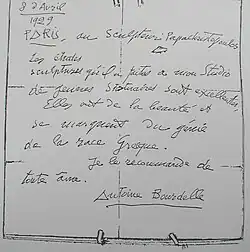 2 Avril
1929
PARIS au sculpteur Papachristopoulos
Les études
sculpturales qu'il a faites a mon Studio
de jeunes Statuaires sont excellentes
Elles ont de la beauté et
se marquent du génie
de la race Grecque.
Je le recommande de
toute âme.
Antoine Bourdelle